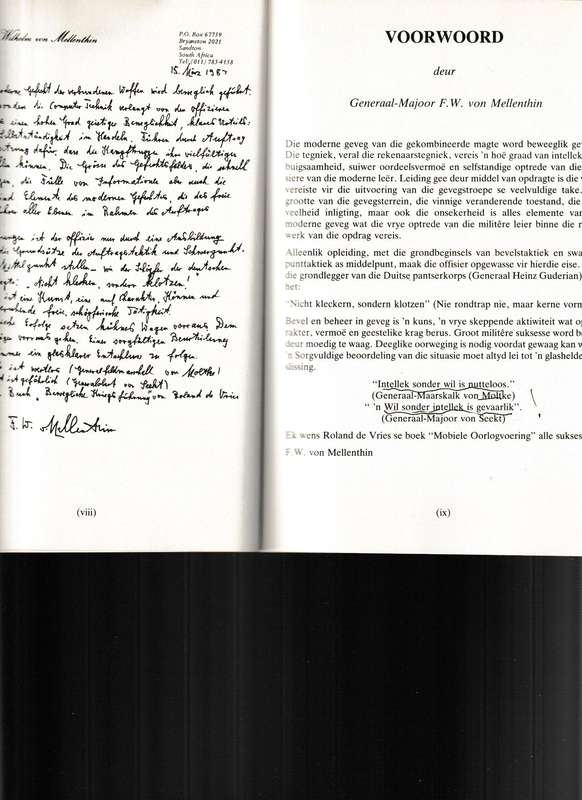 Wilhelm von Mellenthin
P.O. Box 67739
Bryanston 2021
Sandton
South Africa
Tel: (011) 783-4158
15. März 1987
moderne Gefecht der verbundenen Waffen wird beweglich geführt.
die Computer Technik verlangt von den Offizieren
einen hohen Grad geistiger Beweglichkeit, klares Urteils-
Selbstständigkeit im Handeln. Führen durch Auftrag
dafür, dass die Kampftruppe ihre vielfältigen
können. Die Grösse des Gefechtsfeldes, die schnell
die Fülle von Informationen aber auch die
sind Elemente des modernen Gefechtes, die das freie
aller Ebenen im Rahmen des Auftrages
ist der Offizier nur durch eine Ausbildung
die Grundsätze der Auftragstaktik und Schwerpunkt-
stellen – wie der Schöpfer der deutschen
"Nicht kleckern, sondern klotzen!"
ist eine Kunst, eine auf Charakter, Können und
freie, schöpferische Tätigkeit.
Erfolge setzen kühnes Wagen voraus. Dem
Wägen vorausgehen. Einer sorgfältigen Beurteilung
immer ein glasklarer Entschluss zu folgen.
ist wertlos (Generalfeldmarschall von Moltke)
ist gefährlich (Generaloberst von Seeckt)
Buch "Bewegliche Kriegsführung" von Roland de Vries
F. W. von Mellenthin
(viii)
VOORWOORD
deur
Generaal-Majoor F.W. von Mellenthin
Die moderne geveg van die gekombineerde magte word beweeglik gev
Die tegniek, veral die rekenaarstegniek, vereis 'n hoë graad van intellek
buigsaamheid, suiwer oordeelsvermoë en selfstandige optrede van die
siere van die moderne leër. Leiding gee deur middel van opdragte is die
vereiste vir die uitvoering van die gevegstroepe se veelvuldige take.
grootte van die gevegsterrein, die vinnige veranderende toestand, die
veelheid inligting, maar ook die onsekerheid is alles elemente van
moderne geveg wat die vrye optrede van die militêre leier binne die r
werk van die opdrag vereis.
Alleenlik opleiding, met die grondbeginsels van bevelstaktiek en swa
punttaktiek as middelpunt, maak die offisier opgewasse vir hierdie eise.
die grondlegger van die Duitse pantserkorps (Generaal Heinz Guderian)
het:
"Nicht kleckern, sondern klotzen" (Nie rondtrap nie, maar kerne vorm
Bevel en beheer in geveg is 'n kuns, 'n vrye skeppende aktiwiteit wat op
rakter, vermoë en geestelike krag berus. Groot militêre suksesse word be
deur moedig te waag. Deeglike oorweging is nodig voordat gewaag kan w
'n Sorgvuldige beoordeling van die situasie moet altyd lei tot 'n glashelde
slissing.
"Intellek sonder wil is nutteloos."
(Generaal-Maarskalk von Moltke)
" 'n Wil sonder intellek is gevaarlik".
(Generaal-Majoor von Seekt)
Ek wens Roland de Vries se boek "Mobiele Oorlogvoering" alle sukses
F.W. von Mellenthin
(ix)